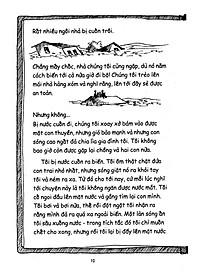 Rất nhiều ngôi nhà bị cuốn trôi.
Chẳng mấy chốc, nhà chúng tôi cũng ngập, dù nó nằm
cách biển tới cả nửa giờ đi bộ! Chúng tôi trèo lên
mái nhà hàng xóm và nghĩ rằng, lên tới đây sẽ được
an toàn.
Nhưng không...
Bị nước cuốn đi, chúng tôi xoay xở bám vào được
một con thuyền, nhưng gió bão mạnh và những con
sóng cao ngất đã chia lìa gia đình tôi. Tôi không
bao giờ còn được gặp lại chồng và hai con nữa.
Tôi bị nước cuốn ra biển. Tôi ôm thật chặt đứa
con trai nhỏ nhất, nhưng sóng giật nó ra khỏi tay
tôi và ném ra xa. Từ đó cho tới nay, cứ mỗi lúc nghĩ
tới chuyện này là tôi không ngăn được nước mắt. Tôi
cố ngoi đầu lên mặt nước và gắng tìm lại con mình.
Tôi bơi và bơi nữa, thế rồi đột ngột tôi nhận ra
rằng mình đã ra quá xa ngoài biển. Một làn sóng ấn
tôi sâu xuống nước - trong tích tắc đó tôi chỉ muốn
chết cho xong, nhưng rồi tôi lại bị đẩy lên mặt nước
10